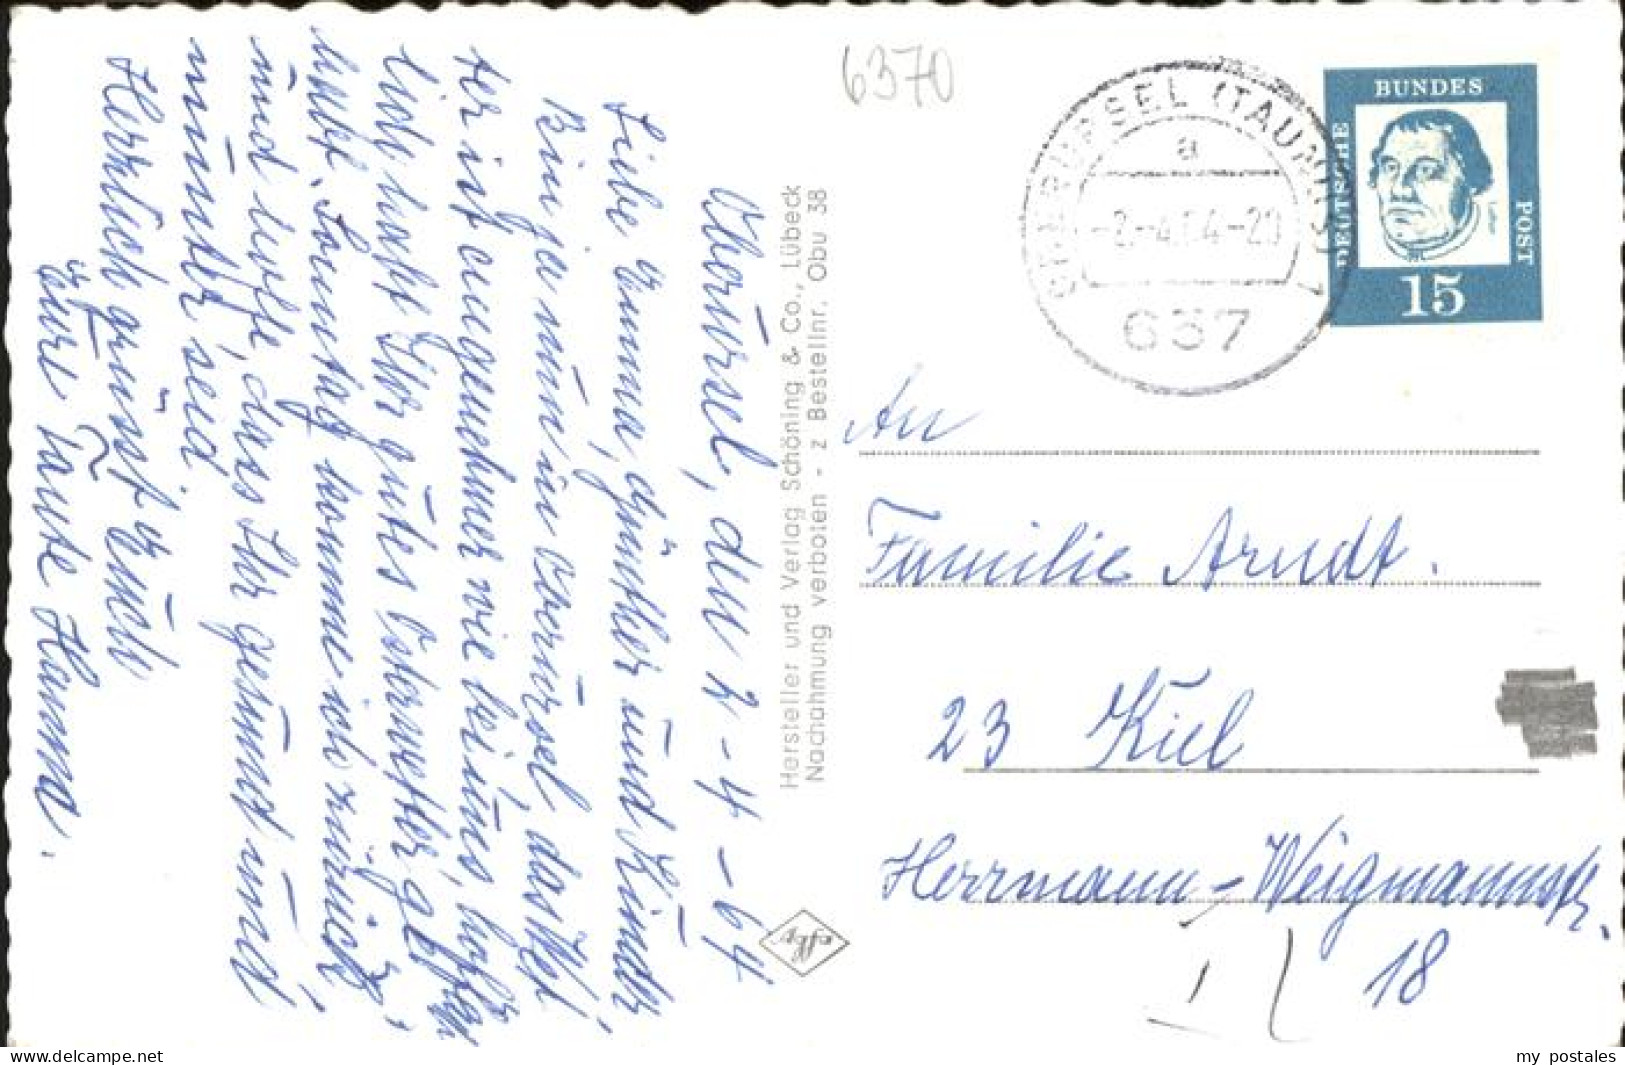 Oberursel, den 2-4-64
Liebe Emma, Günther und Kinder,
Bin ja nun in Oberursel, das Wet
ter ist angenehmer wie bei uns, hoffent
lich habt Ihr gutes Osterwetter ge
habt, Sonntag komme ich zurück,
und hoffe, dass Ihr gesund und
munter seid.
Herzlich grüsst Euch
Eure Tante Hanna.
Hersteller und Verlag Schöning & Co., Lübeck
Nachahmung verboten - z Bestellnr. Obu 38
6370
OBERURSEL (TAUNUS) 1
a
-2.-4.64-20
637
DEUTSCHE
BUNDES
POST
15
An
Familie Arndt.
23 Kiel
Herrmann-Weigmannstr.
18
www.delcampe.net
my_postales